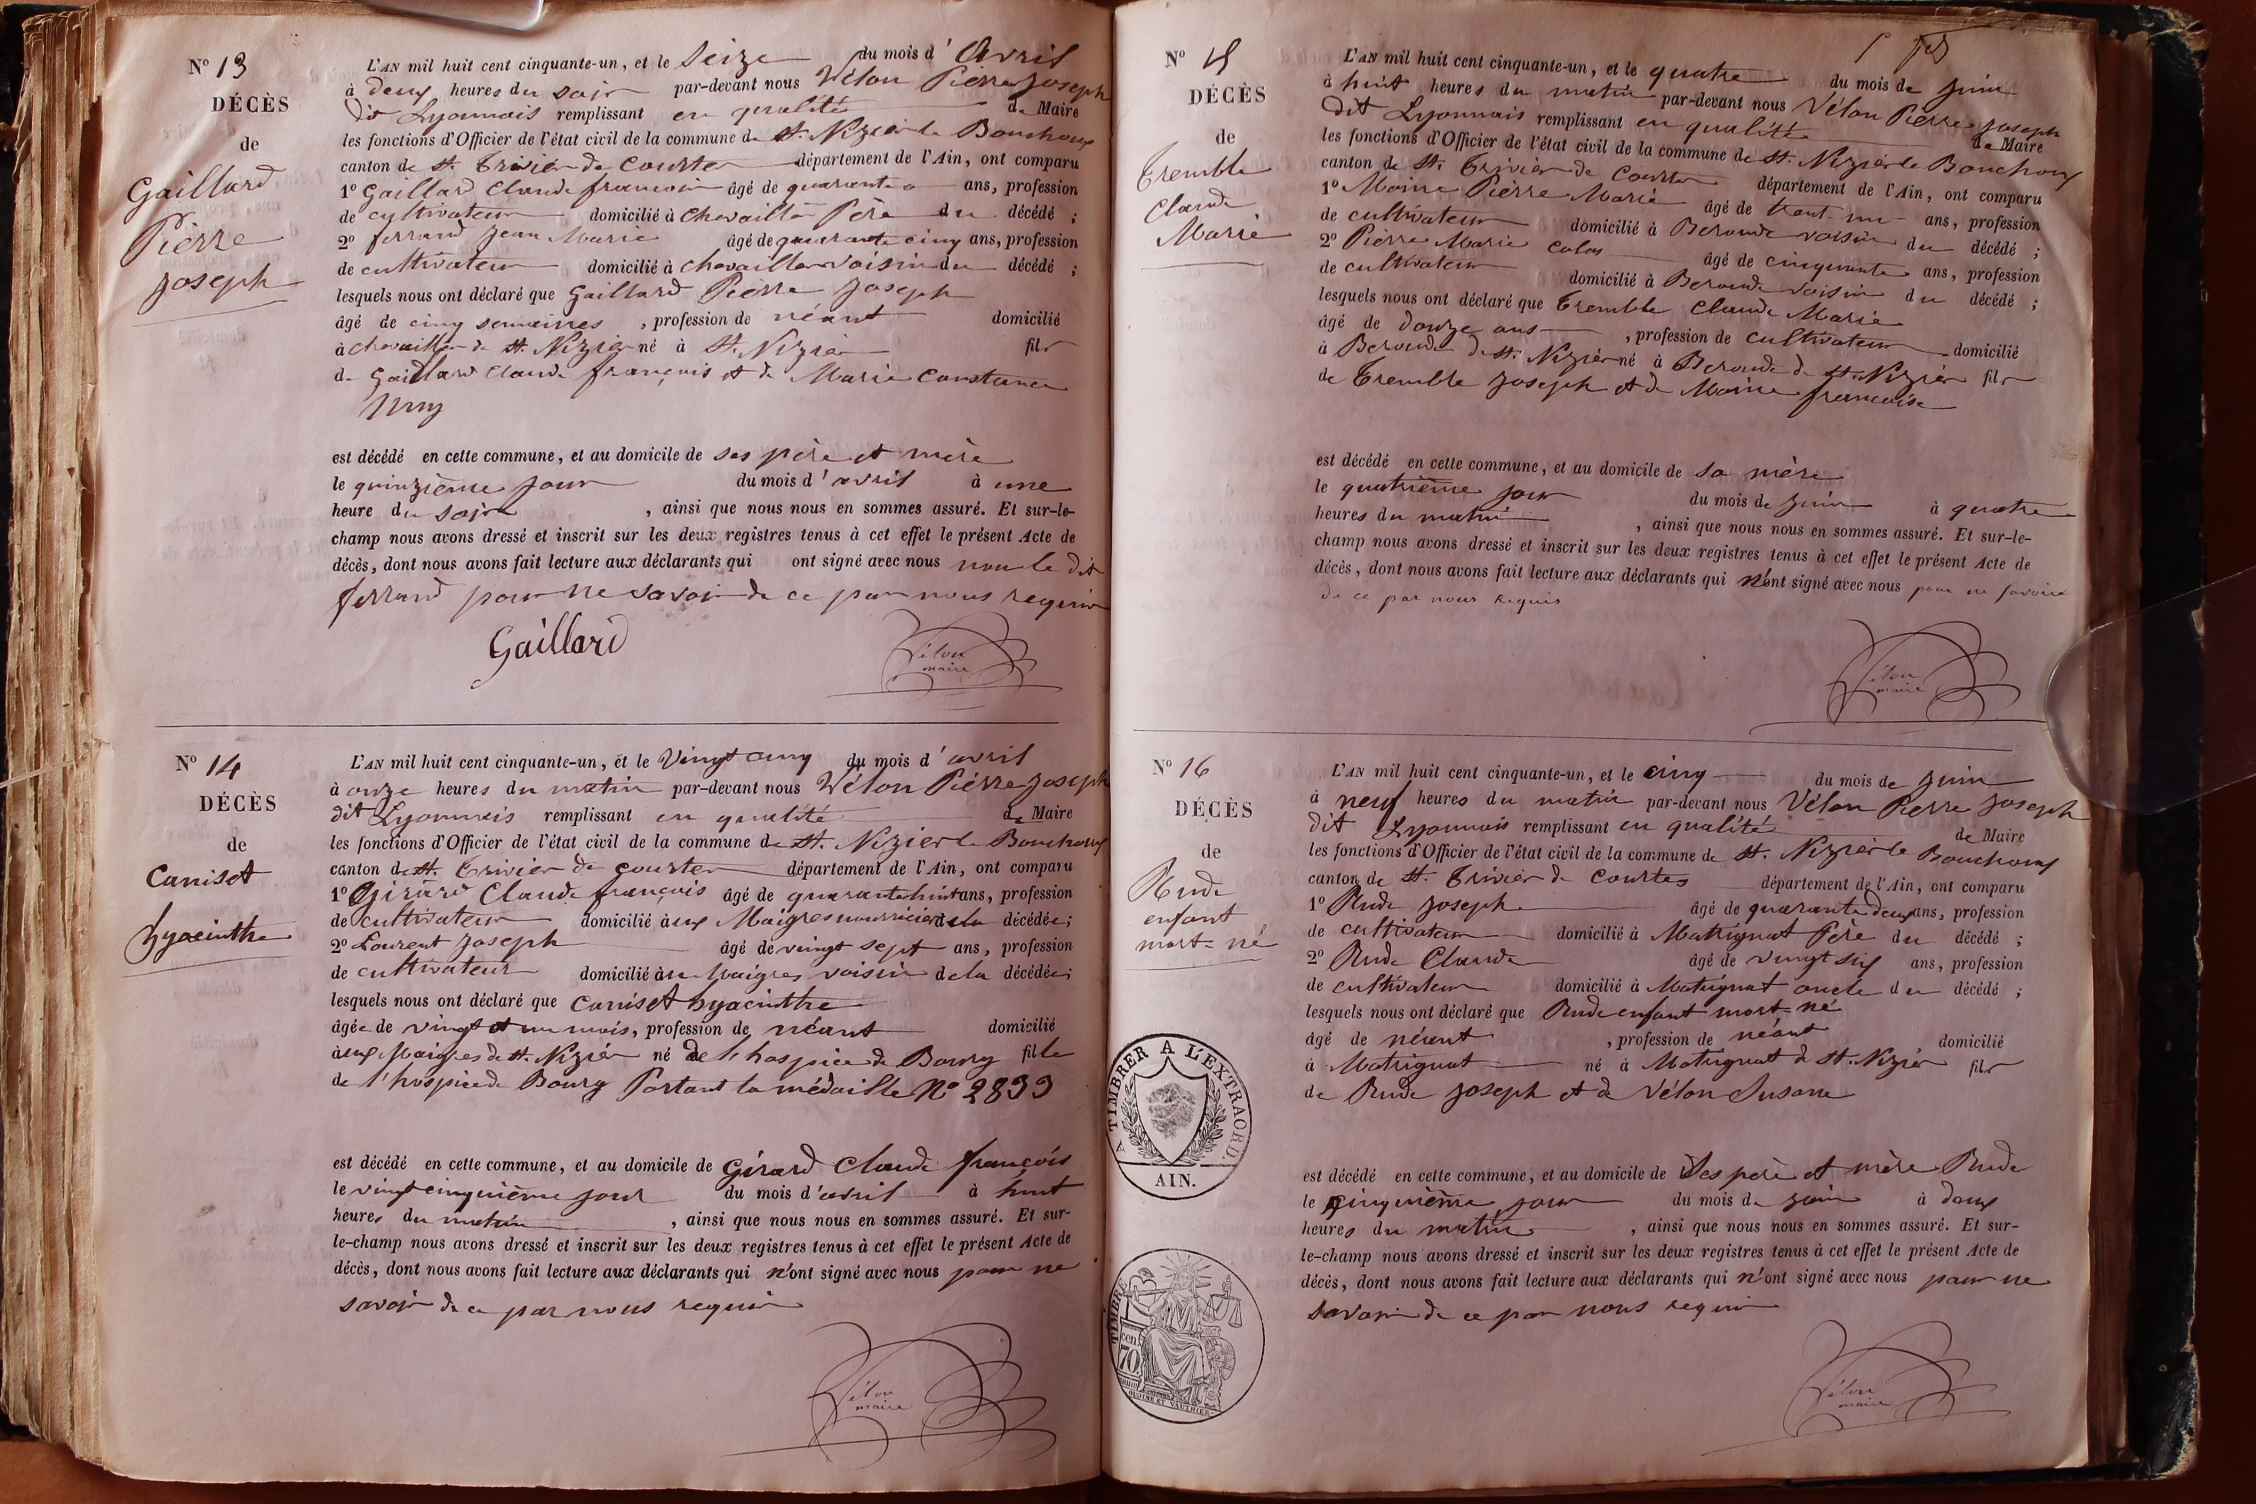 No 13
DÉCÈS
de
Gaillard
Pierre
Joseph
L'AN mil huit cent cinquante-un, et le Seize du mois d' Avril
à deux heures du soir par-devant nous Vélon Pierre Joseph
dit Lyonnais remplissant en qualité de Maire
les fonctions d'Officier de l'état civil de la commune de St. Nizier le Bouchoux
canton de St. Trivier de Courtes département de l'Ain, ont comparu
1o Gaillard Claude françois âgé de quarante ans, profession
de cultivateur domicilié à Chevailler Père du décédé ;
2o ferrand Jean Marie âgé de quarante cinq ans, profession
de cultivateur domicilié à chevailler voisin du décédé ;
lesquels nous ont déclaré que Gaillard Pierre Joseph
âgé de cinq semaines , profession de néant domicilié
à chevailler de St. Nizier né à St. Nizier fils
de Gaillard Claude françois et de Marie Constance
est décédé en cette commune, et au domicile de ses père et mère
le quinzième jour du mois d' avril à une
heure du soir , ainsi que nous nous en sommes assuré. Et sur-le-
champ nous avons dressé et inscrit sur les deux registres tenus à cet effet le présent Acte de
décès, dont nous avons fait lecture aux déclarants qui ont signé avec nous non le dit
ferrand pour ne savoir de ce par nous requis
Gaillard
Vélon
maire
No 14
DÉCÈS
de
Caniset
hyacinthe
L'AN mil huit cent cinquante-un, et le Vingt cinq du mois d' avril
à onze heures du matin par-devant nous Vélon Pierre Joseph
dit Lyonnais remplissant en qualité de Maire
les fonctions d'Officier de l'état civil de la commune de St. Nizier le Bouchoux
canton de St. Trivier de Courtes département de l'Ain, ont comparu
1o Girard Claude françois âgé de quarante huit ans, profession
de cultivateur domicilié aux Maigres nourricier de la décédée ;
2o Laurent Joseph âgé de vingt sept ans, profession
de cultivateur domicilié aux Maigres voisin de la décédée ;
lesquels nous ont déclaré que Caniset hyacinthe
âgée de vingt et un mois, profession de néant domicilié
aux Maigres de St. Nizier né de l'hospice de Bourg fille
de l'hospice de Bourg Portant la médaille No 2833
est décédé en cette commune, et au domicile de Gérard Claude françois
le vingt cinquième jour du mois d' avril à huit
heures du matin , ainsi que nous nous en sommes assuré. Et sur-
le-champ nous avons dressé et inscrit sur les deux registres tenus à cet effet le présent Acte de
décès, dont nous avons fait lecture aux déclarants qui n'ont signé avec nous pour ne
savoir de ce par nous requis
Vélon
maire
No 15
DÉCÈS
de
Tremble
Claude
Marie
L'AN mil huit cent cinquante-un, et le quatre du mois de Juin
à huit heures du matin par-devant nous Vélon Pierre Joseph
dit Lyonnais remplissant en qualité de Maire
les fonctions d'Officier de l'état civil de la commune de St. Nizier le Bouchoux
canton de St. Trivier de Courtes département de l'Ain, ont comparu
1o Moine Pierre Marie âgé de trent-un ans, profession
de cultivateur domicilié à Beroude voisin du décédé ;
2o Pierre Marie Colas âgé de cinquante ans, profession
de cultivateur domicilié à Beroude voisin du décédé ;
lesquels nous ont déclaré que Tremble Claude Marie
âgé de douze ans , profession de cultivateur domicilié
à Beroude de St. Nizier né à Beroude de St. Nizier fils
de Tremble Joseph et de Moine francoise
est décédé en cette commune, et au domicile de sa mère
le quatrième jour du mois de juin à quatre
heures du matin , ainsi que nous nous en sommes assuré. Et sur-le-
champ nous avons dressé et inscrit sur les deux registres tenus à cet effet le présent Acte de
décès, dont nous avons fait lecture aux déclarants qui n'ont signé avec nous pour ne savoir
de ce par nous requis
Vélon
maire
No 16
DÉCÈS
de
Rude
enfant
mort-né
L'AN mil huit cent cinquante-un, et le cinq du mois de Juin
à neuf heures du matin par-devant nous Vélon Pierre Joseph
dit Lyonnais remplissant en qualité de Maire
les fonctions d'Officier de l'état civil de la commune de St. Nizier le Bouchoux
canton de St. Trivier de Courtes département de l'Ain, ont comparu
1o Rude Joseph âgé de quarante deux ans, profession
de cultivateur domicilié à Matrignat Père du décédé ;
2o Rude Claude âgé de vingt six ans, profession
de cultivateur domicilié à Matrignat oncle du décédé ;
lesquels nous ont déclaré que Rude enfant mort-né
âgé de néant , profession de néant domicilié
à Matrignat né à Matrignat de St. Nizier fils
de Rude Joseph et de Vélon Susane
est décédé en cette commune, et au domicile de Ses père et mère Rude
le cinquième jour du mois de juin à deux
heures du matin , ainsi que nous nous en sommes assuré. Et sur-
le-champ nous avons dressé et inscrit sur les deux registres tenus à cet effet le présent Acte de
décès, dont nous avons fait lecture aux déclarants qui n'ont signé avec nous pour ne
savoir de ce par nous requis
Vélon
maire
A TIMBRER A L'EXTRAORD.
AIN.
TIMBRE
cen
70